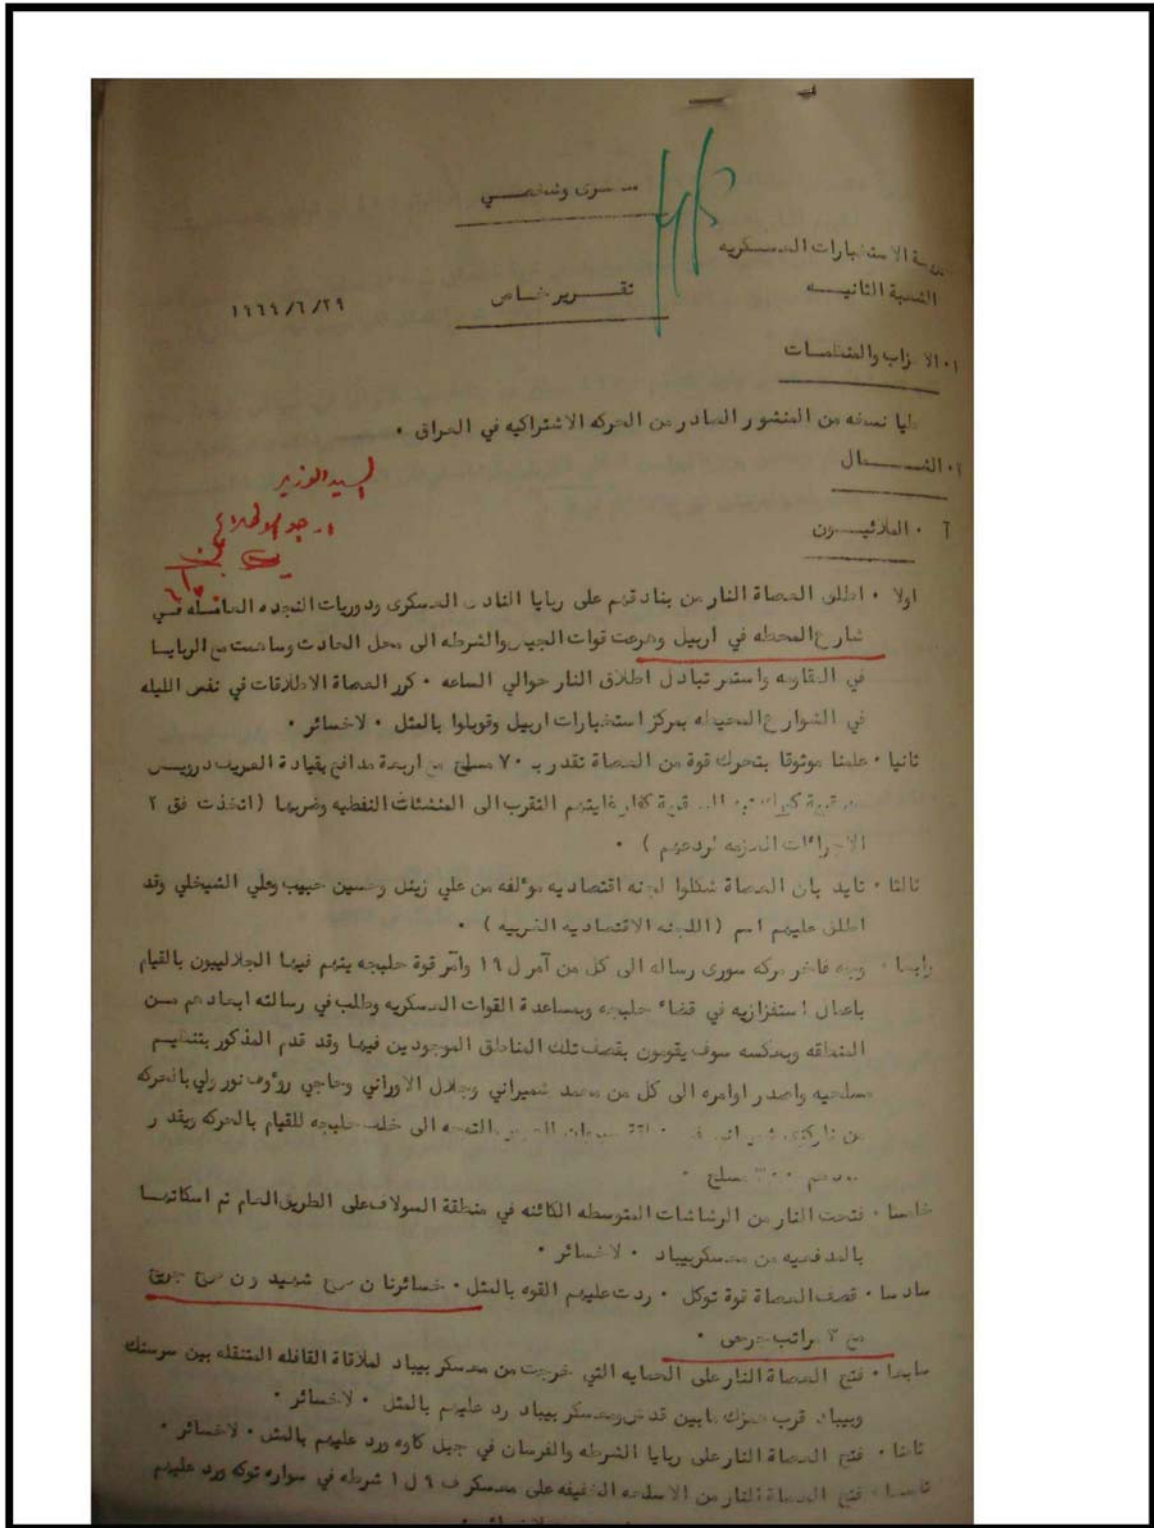 سرى وشخصي
مديرية الاستخبارات العسكريه
الشعبة الثانيه
تقرير خاص
١٩٦٩/٦/٢٩
١٠ الاحزاب والمنظمات
طيا نسخه من المنشور الصادر من الحركه الاشتراكيه في العراق ٠
الشمال
السيد الوزير
أ ٠ الملائيون
اولا ٠ اطلق العصاة النار من بنادقهم على ربايا النادى العسكرى ودوريات النجده العامله في
شارع المحطه في اربيل وهرعت قوات الجيش والشرطه الى محل الحادث وساهمت مع الربايا
في المقاومه واستمر تبادل اطلاق النار حوالي الساعه ٠ كرر العصاة الاطلاقات في نفس الليله
في الشوارع المحيطه بمركز استخبارات اربيل وقوبلوا بالمثل ٠ لاخسائر ٠
ثانيا ٠ علمنا موثوقا بتحرك قوة من العصاة تقدر بـ ٧٠ مسلح مع اربعة مدافع بقيادة العريف درويش
قرية غايتهم التقرب الى المنشئات النفطيه وضربها (اتخذت فق ٢
الاجراءات اللازمه لردعهم) ٠
ثالثا ٠ تايد بان العصاة شكلوا لجنه اقتصاديه مؤلفه من علي زينل وحسين حبيب وعلي الشيخلي وقد
اطلق عليهم اسم (اللجنه الاقتصاديه الضريبيه) ٠
رابعا ٠ وجه فاخر مركه سورى رساله الى كل من آمر ل ١٩ وآمر قوة حلبجه يتهم فيها الجلاليون بالقيام
باعمال استفزازيه في قضاء حلبجه وبمساعدة القوات العسكريه وطلب في رسالته ابعادهم من
المنطقه وبعكسه سوف يقومون بقصف تلك المناطق الموجودين فيها وقد قدم المذكور بتنظيم
مسلحيه واصدر اوامره الى كل من محمد شميراني وجلال الاوراني وحاجي رؤوف نور ولي بالحركه
من الى خلف حلبجه للقيام بالحركه ويقدر
عددهم مسلح ٠
خامسا ٠ فتحت النار من الرشاشات المتوسطه الكائنه في منطقة السولاف على الطريق العام تم اسكاتها
بالمدفعيه من معسكر بيباد ٠ لاخسائر ٠
سادسا ٠ قصف العصاة قوة توكل ٠ ردت عليهم القوه بالمثل ٠ خسائرنا ن شهيد ون جريح
مع ٣ مراتب جرحى ٠
سابعا ٠ فتح العصاة النار على الحمايه التي خرجت من معسكر بيباد لملاقاة القافله المتنقله بين سرسنك
وبيباد قرب مابين ومعسكر بيباد رد عليهم بالمثل ٠ لاخسائر ٠
ثامنا ٠ فتح العصاة النار على ربايا الشرطه والفرسان في جبل كاوه ورد عليهم بالمثل ٠ لاخسائر ٠
تاسعا ٠ فتح العصاة النار من الاسلحه الخفيفه على معسكر ف ٩ ل ١ شرطه في سواره توكه ورد عليهم